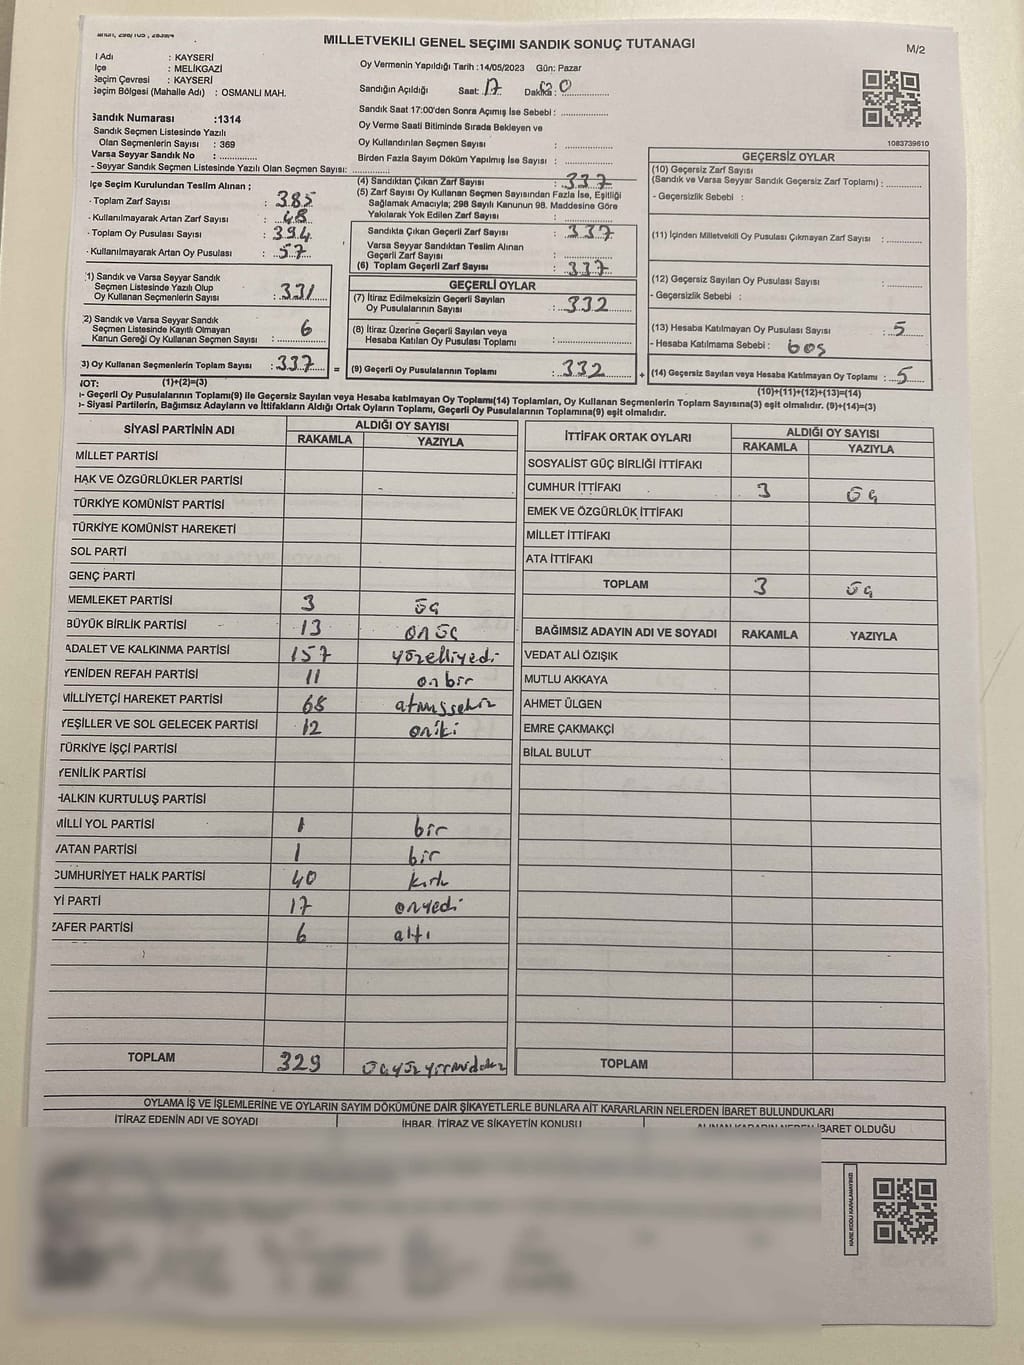 MİLLETVEKİLİ GENEL SEÇİMİ SANDIK SONUÇ TUTANAĞI
M/2
İ Adı : KAYSERİ
İlçe : MELİKGAZİ
Seçim Çevresi : KAYSERİ
Seçim Bölgesi (Mahalle Adı) : OSMANLI MAH.
Oy Vermenin Yapıldığı Tarih :14/05/2023 Gün: Pazar
Sandığın Açıldığı Saat: 17 Dakika :
Sandık Saat 17:00'den Sonra Açımış İse Sebebi :
Oy Verme Saati Bitiminde Sırada Bekleyen ve
Oy Kullandırılan Seçmen Sayısı :
Birden Fazla Sayım Döküm Yapılmış İse Sayısı :
Sandık Numarası :1314
Sandık Seçmen Listesinde Yazılı
Olan Seçmenlerin Sayısı : 369
Varsa Seyyar Sandık No :
- Seyyar Sandık Seçmen Listesinde Yazılı Olan Seçmen Sayısı:
1083739610
İlçe Seçim Kurulundan Teslim Alınan ;
- Toplam Zarf Sayısı : 385
- Kullanılmayarak Artan Zarf Sayısı : 48
- Toplam Oy Pusulası Sayısı : 394
- Kullanılmayarak Artan Oy Pusulası : 57
(1) Sandık ve Varsa Seyyar Sandık
Seçmen Listesinde Yazılı Olup
Oy Kullanan Seçmenlerin Sayısı : 331
(2) Sandık ve Varsa Seyyar Sandık
Seçmen Listesinde Kayıtlı Olmayan
Kanun Gereği Oy Kullanan Seçmen Sayısı : 6
3) Oy Kullanan Seçmenlerin Toplam Sayısı : 337 =
(1)+(2)=(3)
(4) Sandıktan Çıkan Zarf Sayısı : 337
(5) Zarf Sayısı Oy Kullanan Seçmen Sayısından Fazla İse, Eşitliği
Sağlamak Amacıyla; 298 Sayılı Kanunun 98. Maddesine Göre
Yakılarak Yok Edilen Zarf Sayısı :
Sandıkta Çıkan Geçerli Zarf Sayısı : 337
Varsa Seyyar Sandıktan Teslim Alınan
Geçerli Zarf Sayısı :
(6) Toplam Geçerli Zarf Sayısı : 337
GEÇERLİ OYLAR
(7) İtiraz Edilmeksizin Geçerli Sayılan
Oy Pusulalarının Sayısı : 332
(8) İtiraz Üzerine Geçerli Sayılan veya
Hesaba Katılan Oy Pusulası Toplamı :
(9) Geçerli Oy Pusulalarının Toplamı : 332 +
GEÇERSİZ OYLAR
(10) Geçersiz Zarf Sayısı
(Sandık ve Varsa Seyyar Sandık Geçersiz Zarf Toplamı) :
- Geçersizlik Sebebi :
(11) İçinden Milletvekili Oy Pusulası Çıkmayan Zarf Sayısı :
(12) Geçersiz Sayılan Oy Pusulası Sayısı :
- Geçersizlik Sebebi :
(13) Hesaba Katılmayan Oy Pusulası Sayısı : 5
- Hesaba Katılmama Sebebi : boş
(14) Geçersiz Sayılan veya Hesaba Katılmayan Oy Toplamı : 5
(10)+(11)+(12)+(13)=(14)
NOT:
- Geçerli Oy Pusulalarının Toplamı(9) ile Geçersiz Sayılan veya Hesaba katılmayan Oy Toplamı(14) Toplamları, Oy Kullanan Seçmenlerin Toplam Sayısına(3) eşit olmalıdır. (9)+(14)=(3)
- Siyasi Partilerin, Bağımsız Adayların ve İttifakların Aldığı Ortak Oyların Toplamı, Geçerli Oy Pusulalarının Toplamına(9) eşit olmalıdır.
SİYASİ PARTİNİN ADI ALDIĞI OY SAYISI
RAKAMLA YAZIYLA
MİLLET PARTİSİ
HAK VE ÖZGÜRLÜKLER PARTİSİ -
TÜRKİYE KOMÜNİST PARTİSİ
TÜRKİYE KOMÜNİST HAREKETİ
SOL PARTİ
GENÇ PARTİ
MEMLEKET PARTİSİ 3 üç
BÜYÜK BİRLİK PARTİSİ 13 onüç
ADALET VE KALKINMA PARTİSİ 157 yüzelliyedi
YENİDEN REFAH PARTİSİ 11 onbir
MİLLİYETÇİ HAREKET PARTİSİ 68 atmışsekiz
YEŞİLLER VE SOL GELECEK PARTİSİ 12 oniki
TÜRKİYE İŞÇİ PARTİSİ
YENİLİK PARTİSİ
HALKIN KURTULUŞ PARTİSİ
MİLLİ YOL PARTİSİ 1 bir
VATAN PARTİSİ 1 bir
CUMHURİYET HALK PARTİSİ 40 kırk
İYİ PARTİ 17 onyedi
ZAFER PARTİSİ 6 altı
TOPLAM 329 üçyüzyirmidokuz
İTTİFAK ORTAK OYLARI ALDIĞI OY SAYISI
RAKAMLA YAZIYLA
SOSYALİST GÜÇ BİRLİĞİ İTTİFAKI
CUMHUR İTTİFAKI 3 üç
EMEK VE ÖZGÜRLÜK İTTİFAKI
MİLLET İTTİFAKI
ATA İTTİFAKI
TOPLAM 3 üç
BAĞIMSIZ ADAYIN ADI VE SOYADI RAKAMLA YAZIYLA
VEDAT ALİ ÖZIŞIK
MUTLU AKKAYA
AHMET ÜLGEN
EMRE ÇAKMAKÇİ
BİLAL BULUT
TOPLAM
OYLAMA İŞ VE İŞLEMLERİNE VE OYLARIN SAYIM DÖKÜMÜNE DAİR ŞİKAYETLERLE BUNLARA AİT KARARLARIN NELERDEN İBARET BULUNDUKLARI
İTİRAZ EDENİN ADI VE SOYADI İHBAR, İTİRAZ VE ŞİKAYETİN KONUSU ALINAN KARARIN NEDEN İBARET OLDUĞU